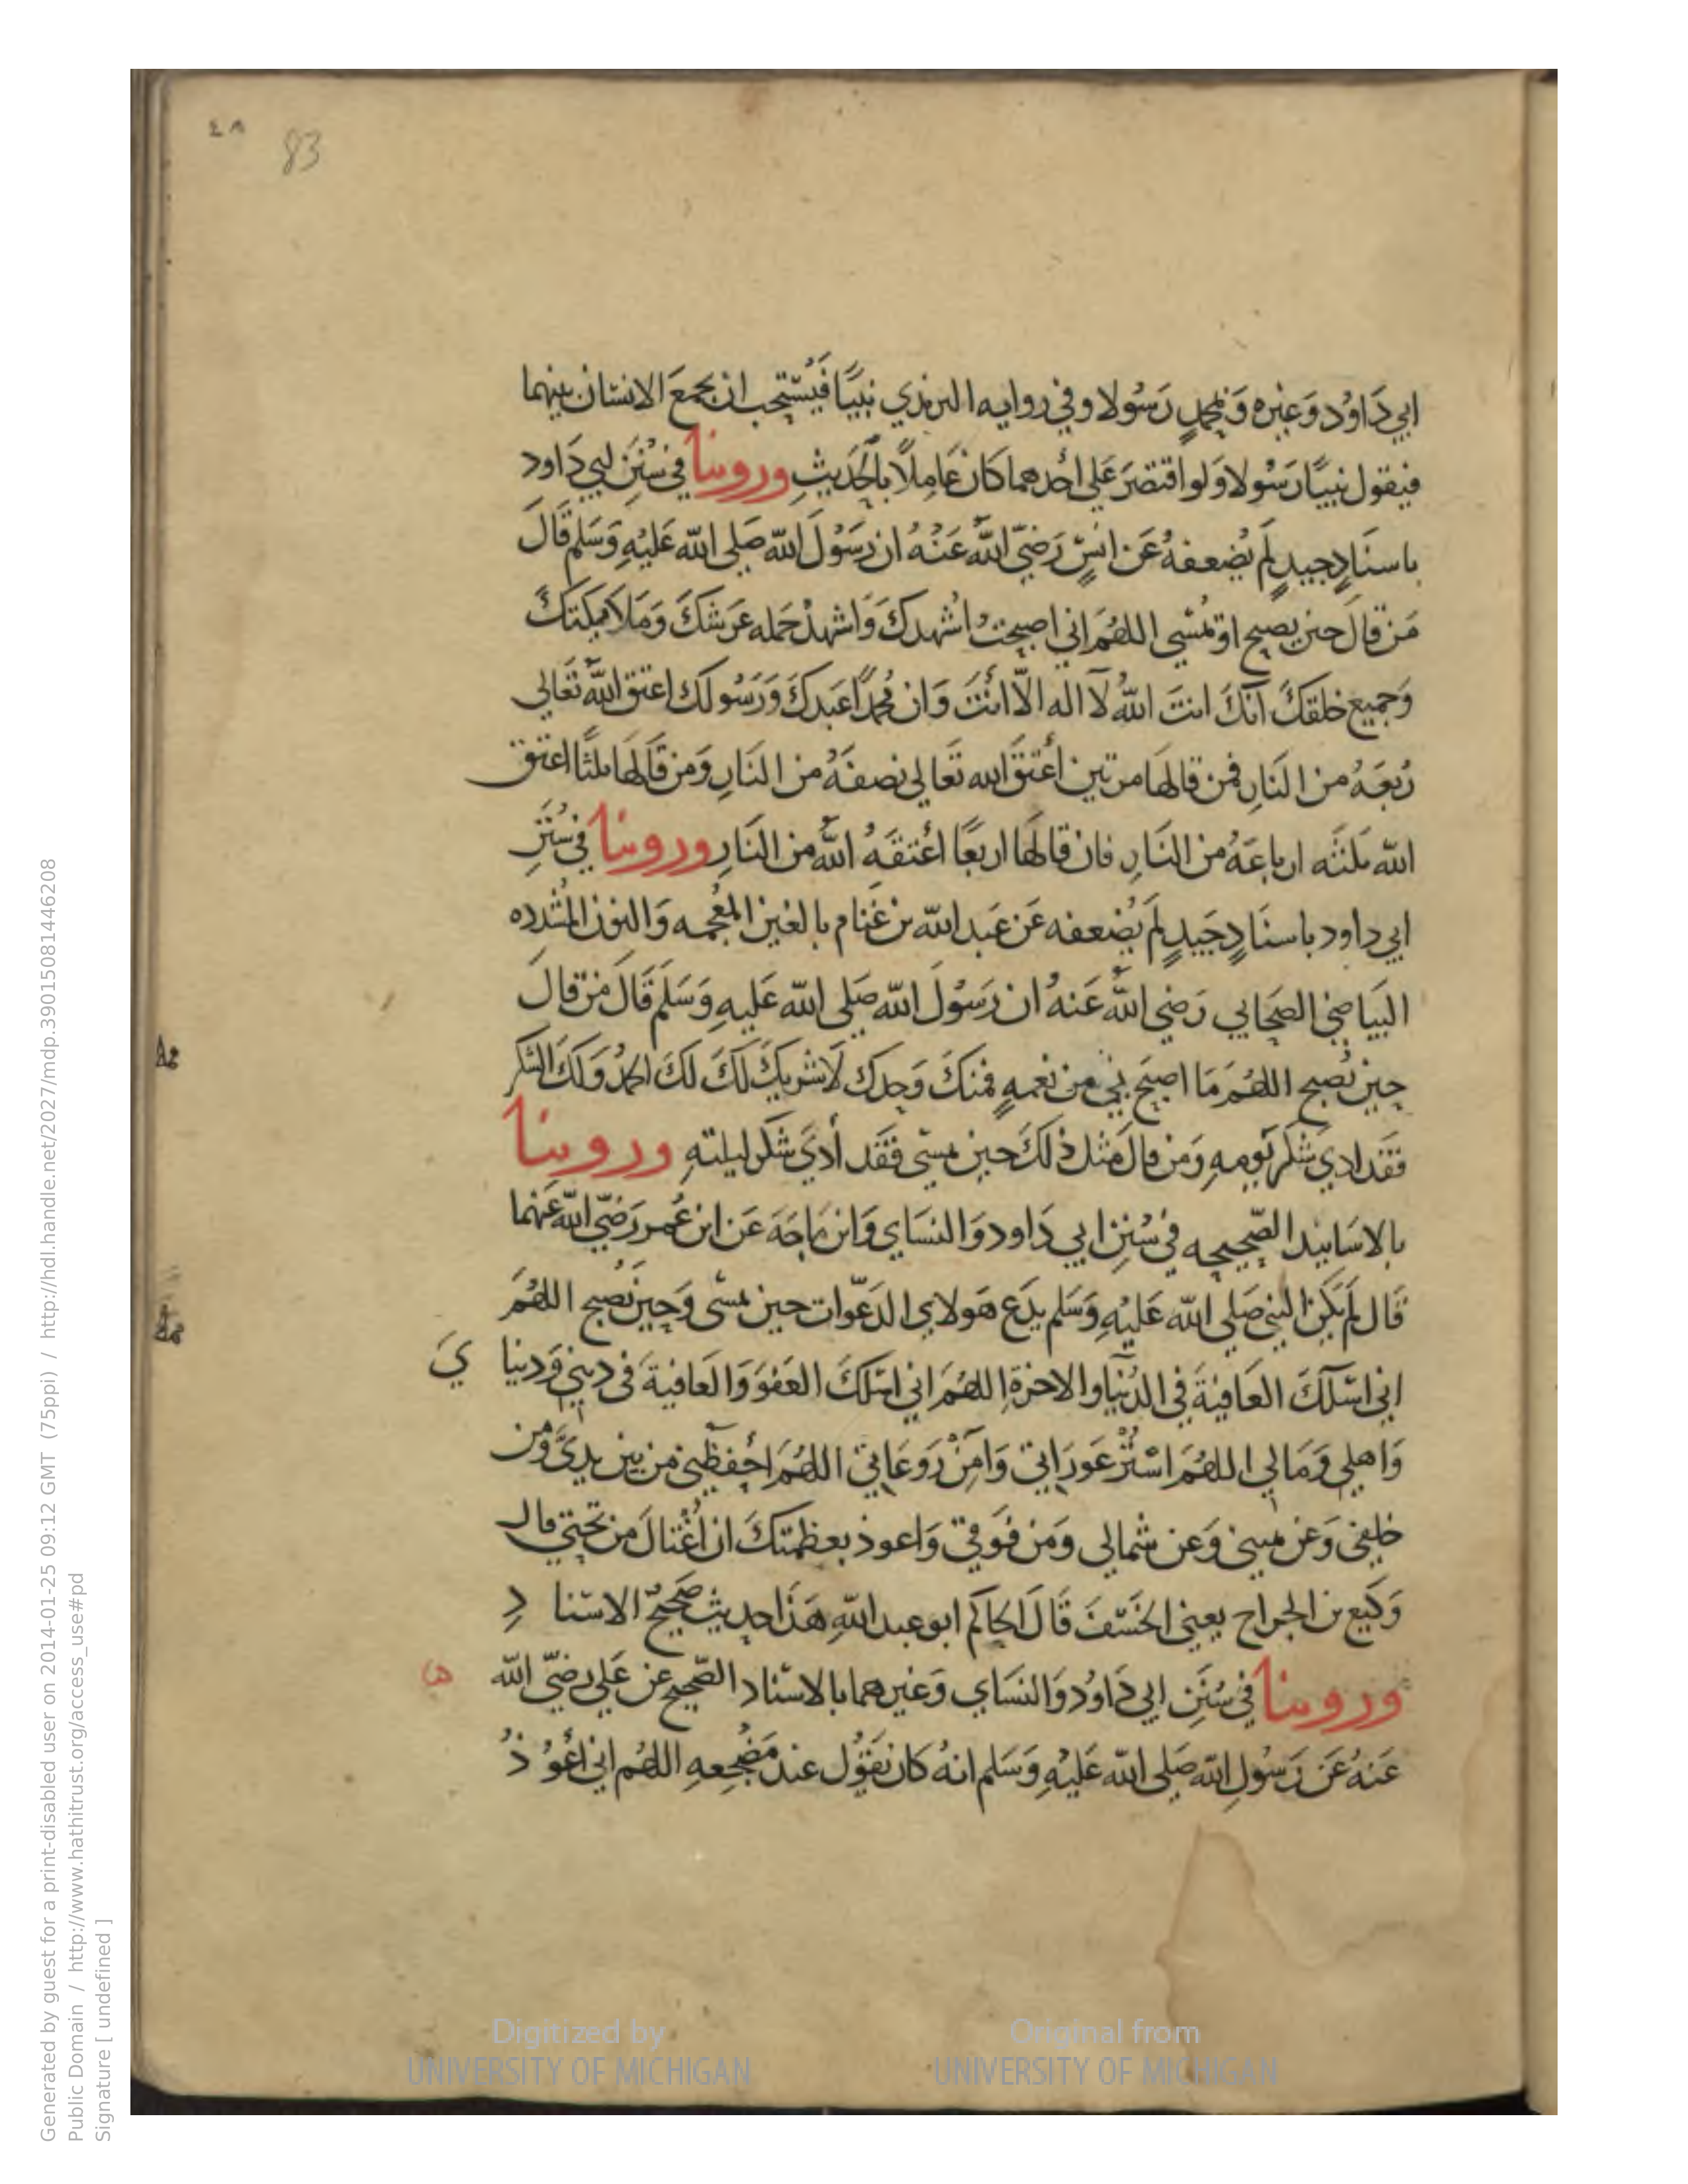 ٤٨
83
ابي دَاوُد وَغيره وَبمحمدٍ رَسُولا وفي روايه الترمذي نبيًا فيُستحب ان يجمعَ الانسان بينهما
فيقول نبيًّا رَسُولا وَلو اقتصرَ علي أحدهما كان عَامِلاً بالحَديثِ وروينا في سُنَن ابي دَاود
باسنَادٍ جيدٍ لَم يُضعفهُ عَن انسٍ رَضيَ اللهُ عَنْهُ ان رَسُولَ الله صَلى الله عَليهِ وَسَلم قَالَ
مَن قالَ حين يصبح او يمْسي اللهُمَ اني اصبحتُ اشهدكَ وَاشهدُ حَمله عَرشكَ وَمَلائكتكَ
وَجميع خلقكَ انكَ انتَ اللهُ لآ اله الاّ انْتَ وَان محُمدًا عَبدكَ وَرَسُولك اعتق اللهُ تَعَالي
رُبعَهُ من النَارِ فمن قالهَا مرتين أعْتقَ الله تعَالي نصفَهُ من النَارِ وَمن قَالهَا ثلثًا اعتق
الله ثلثَه ارباعَهُ من النَارِ فان قالهَا اربعًا اعْتقَهُ اللهُ من النَارِ وروينا في سُنَنِ
ابي داود باسنَادٍ جَيدٍ لَم يُضعفه عَن عَبد الله بن غَنام بالغين المعُجمه وَالنون المشُدده
البيَاضي الصحَابي رَضي اللهُ عَنهُ ان رَسُولَ الله صَلى الله عَليهِ وَسَلم قَالَ مَن قالَ
حين يُصبح اللهُمَ مَا اصبَح بي من نعْمهٍ فمنكَ وَحدك لاَ شريكَ لَكَ لكَ الحمدُ وَلكَ الشكر
فقَد ادي شكرَ يَومهِ وَمن قالَ مثل ذلكَ حين يمسي فقَد أديَ شكر ليلتهِ وروينا
بالاسَانيد الصّحيحه في سُنن ابي دَاود وَالنسَاي وَابن مَاجَه عَن ابن عُمر رَضيَ الله عَنهما
قَال لَم يكن النبي صَلي الله عَليهِ وَسَلم يدَع هَولاي الدَعوات حين يمسي وَحين يُصبح اللهُمَ
اني اسْلكَ العَافيةَ في الدُنيا والاخرةِ اللهُمَ اني اسَلكَ العَفوَ وَالعَافيةَ في ديني وَدنيا يَ
وَاهلي وَمَالي اللهُمَ اسْتُرْ عَورَاتي وَامِنْ رَوعَاتي اللهُمَ احْفظني من بين يديَّ وَمن
خلفي وَعَن يميني وَعن شمالي وَمن فوقي وَاعوذ بعظمتكَ ان اُغْتالَ من تحتي قال
وَكيع بن الجراح يعني الخَسْفَ قَالَ الحاكم ابو عبد اللهِ هَذَا حديث صَحيحُ الاسنا دِ
وروينا في سُنَنِ ابي دَاوُد وَالنسَاي وَغيرهما بالاسناد الصّحيح عن عَلي رضيَ الله
عَنهُ عَن رَسُولِ الله صَلى الله عَليْهِ وَسَلم انهُ كان يَقوُل عند مَضْجعهِ اللهُم اني أعُو ذُ
Generated by guest for a print-disabled user on 2014-01-25 09:12 GMT (75ppi) / http://hdl.handle.net/2027/mdp.39015081446208
Public Domain / http://www.hathitrust.org/access_use#pd
Signature [ undefined ]
Digitized by
UNIVERSITY OF MICHIGAN
Original from
UNIVERSITY OF MICHIGAN